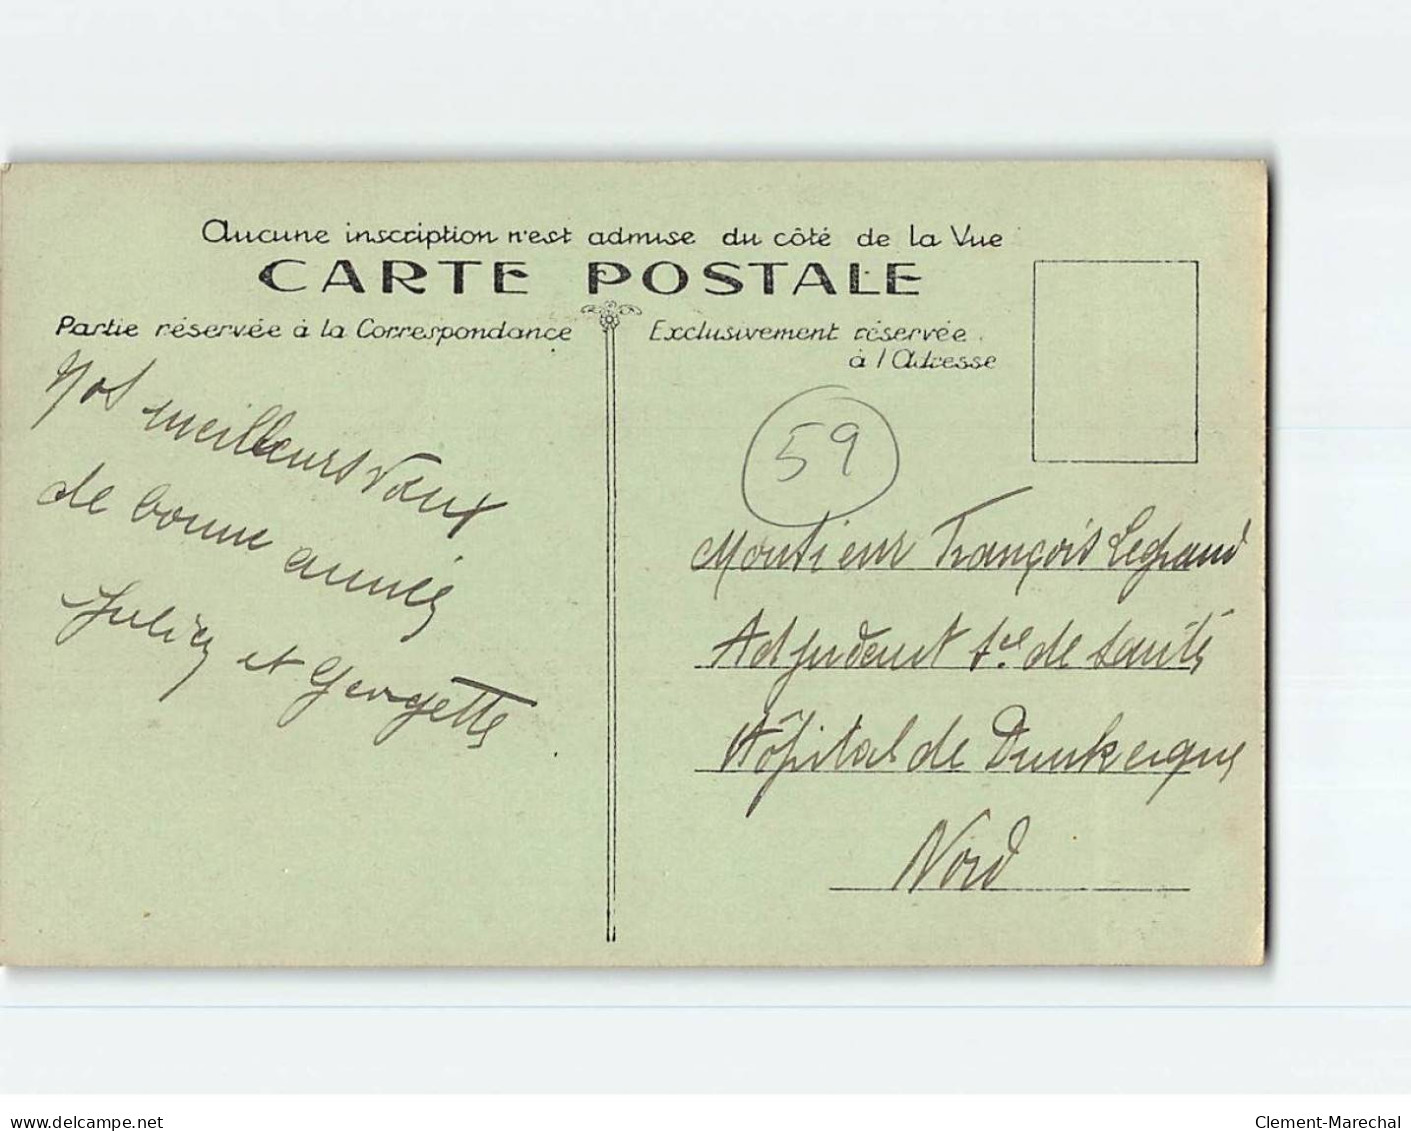 Aucune inscription n'est admise du côté de la Vue
CARTE POSTALE
Partie réservée à la Correspondance
Exclusivement réservée
à l'Adresse
Nos meilleurs vœux
de bonne année
Julien et Georgette
59
Monsieur François Legrand
Adjudant de santé
Hôpital de Dunkerque
Nord
www.delcampe.net
Clement-Marechal